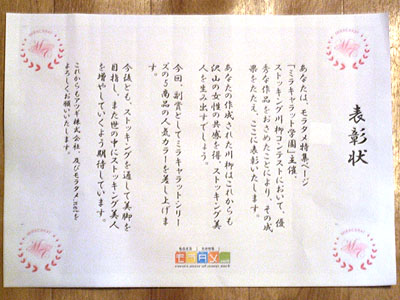 表彰状
あなたは、モラタメ特集ページ
「ミラキャラット学園」主催、
ストッキング川柳コンテストにおいて、優
秀な作品をおさめたことにより、その成
果をたたえ、ここに表彰いたします。
あなたの作成された川柳はこれからも
沢山の女性の共感を得、ストッキング美
人を生み出すでしょう。
今回、副賞としてミラキャラットシリー
ズの5商品の人気カラーを差し上げま
す。
今後とも、ストッキングを通して美脚を
目指し、また世の中にストッキング美人
を増やしていくよう期待しています。
これからもアツギ株式会社、及びモラタメ.netを
よろしくお願いいたします。
モラタメ